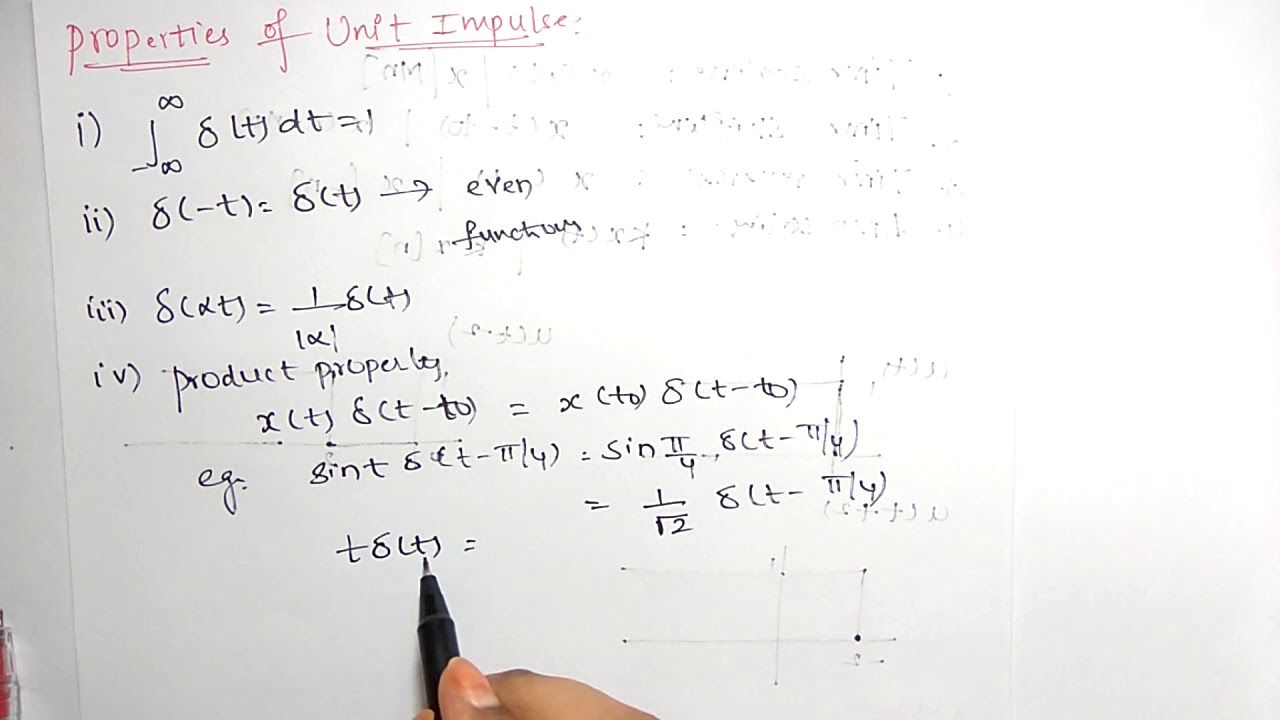 Properties of Unit Impulse:
i) ∫_{-∞}^{∞} δ(t) dt = 1
ii) δ(-t) = δ(t) → even
function
iii) δ(αt) = 1/|α| δ(t)
iv) product property,
x(t) δ(t-t0) = x(t0) δ(t-t0)
eg. sint δ(t-π/4) = sin π/4 . δ(t-π/4)
= 1/√2 δ(t-π/4)
tδ(t) =